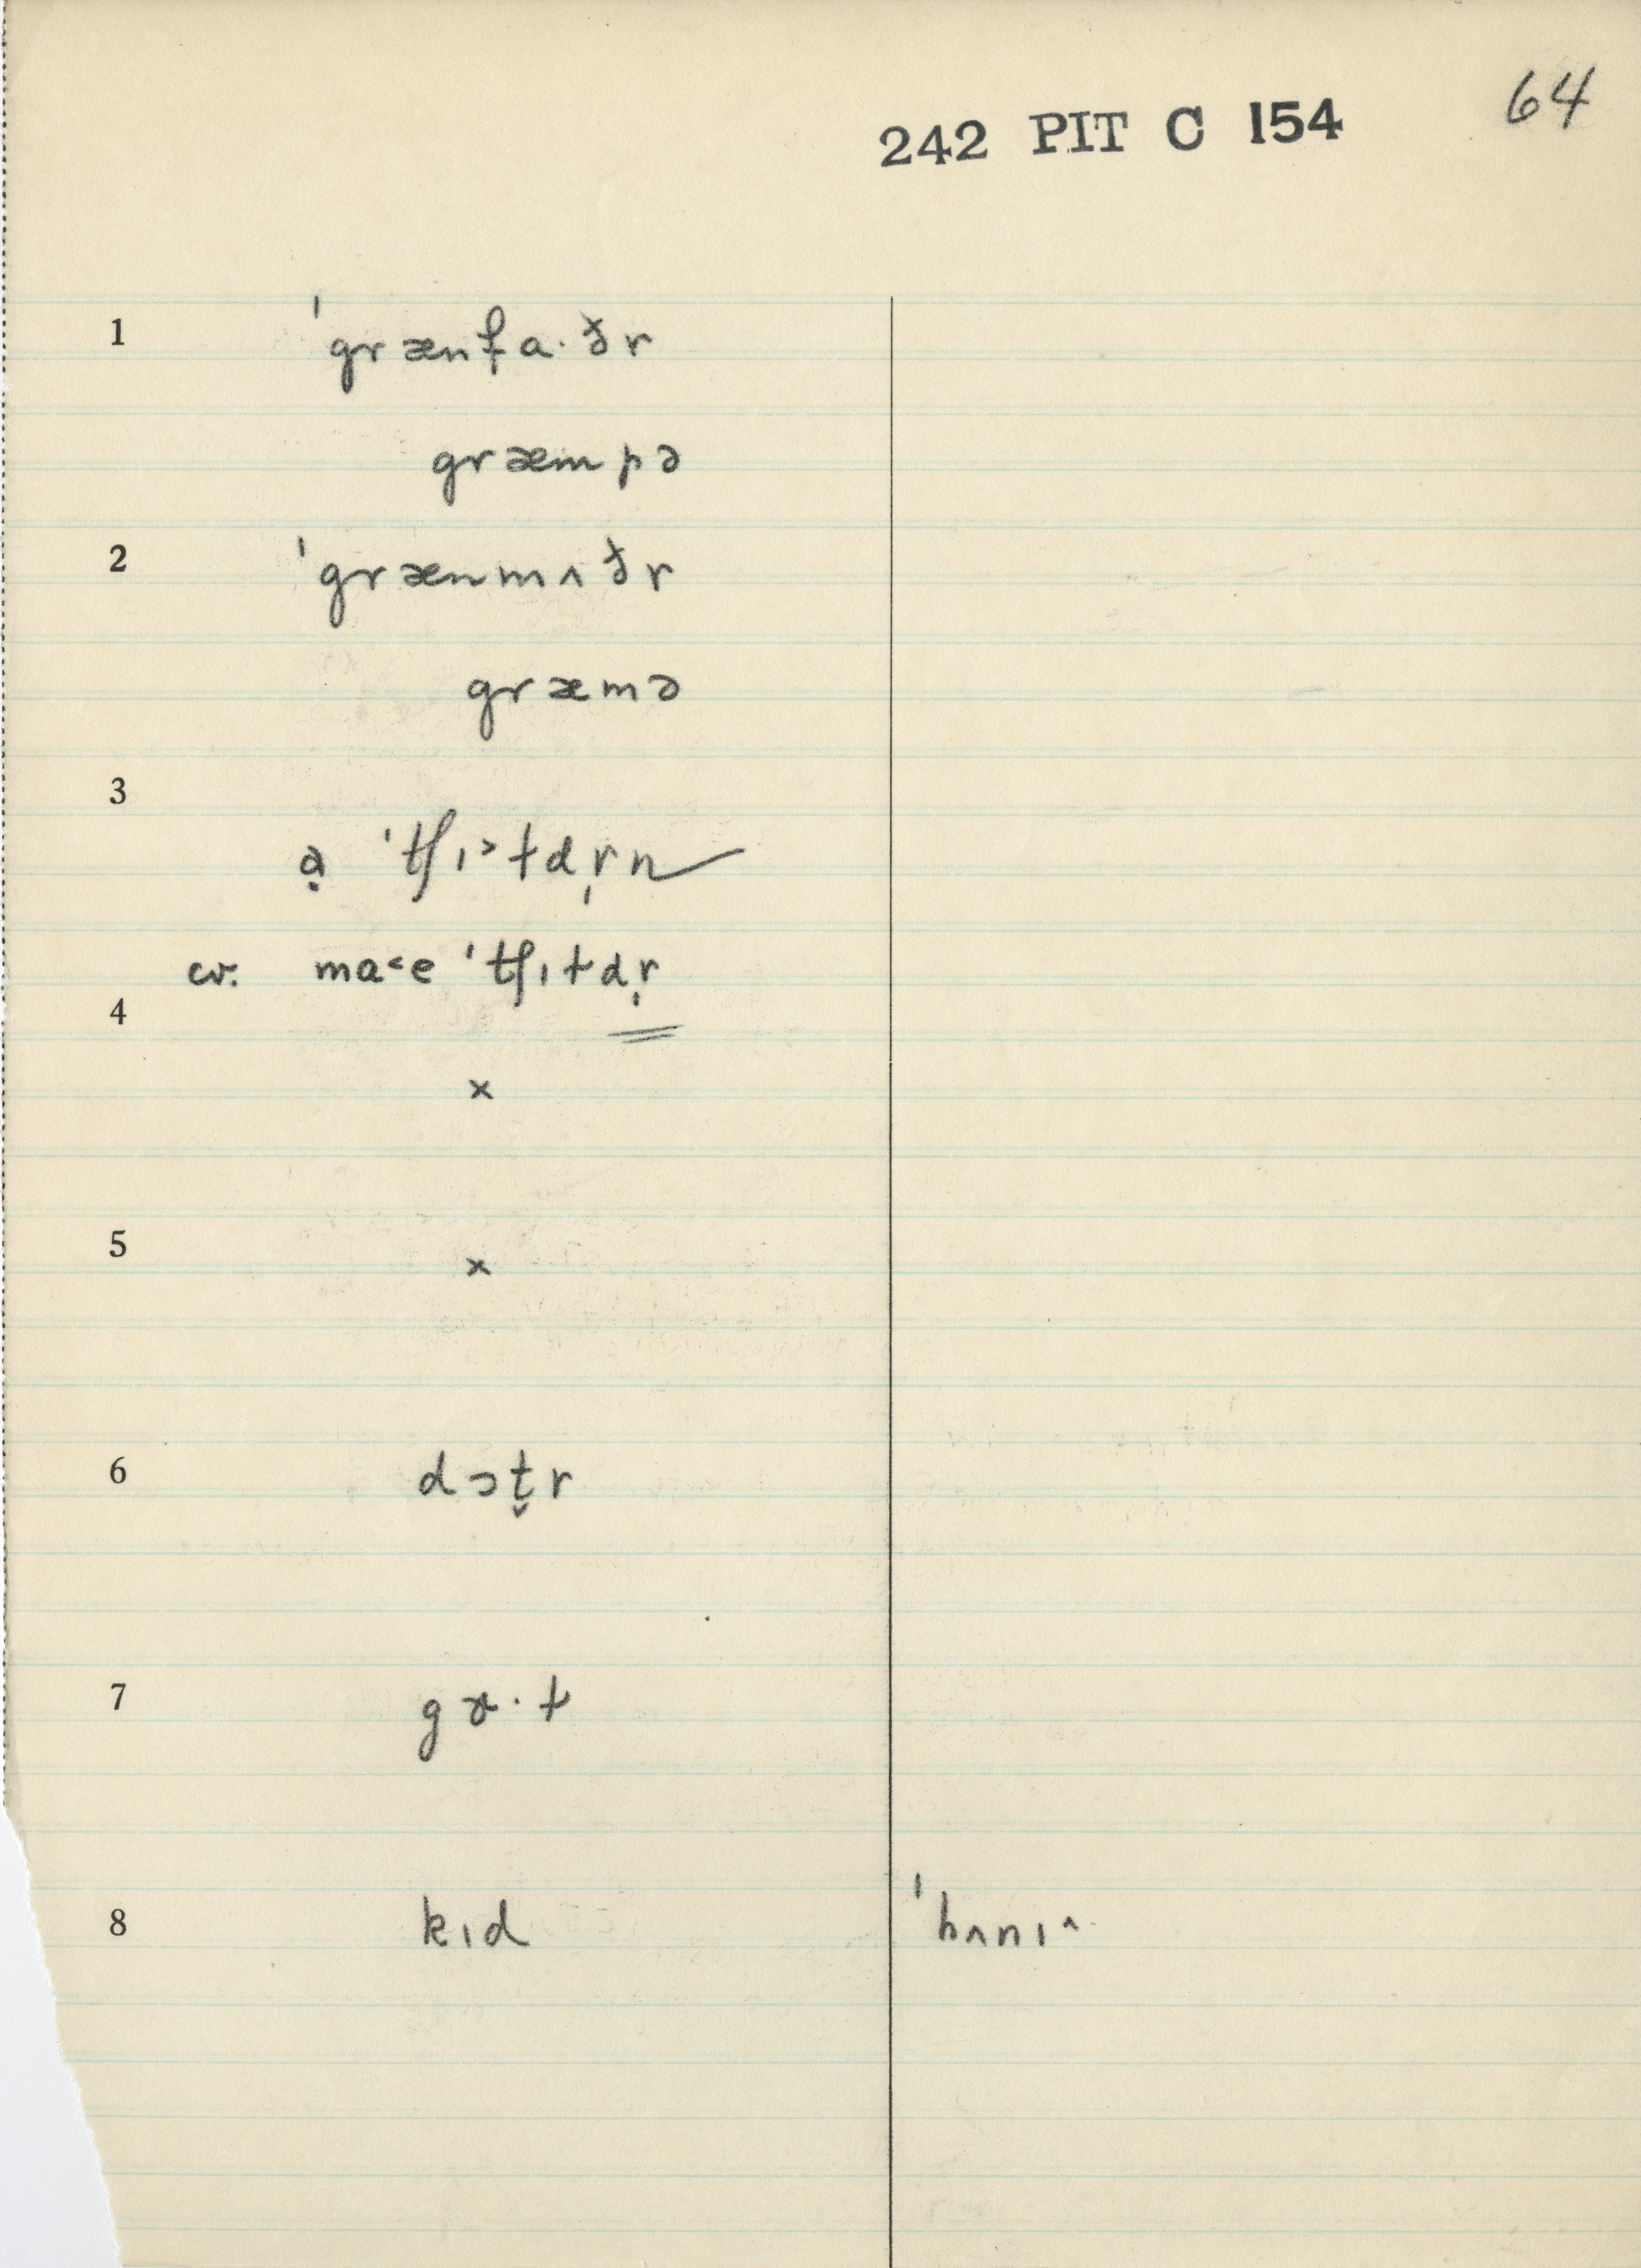 64
242 PIT C 154
1 ˈgrænfa·ðr
græmpə
2 ˈgrænmʌðr
græmə
3
ə̣ ˈtʃɪ˃ɫdr̩n
cv. ma˂e ˈtʃɪɫdr̩
4
×
5 ×
6 dɔt̬r
7 gɝ·ɫ
8 kɪd ˈhʌnɪ^